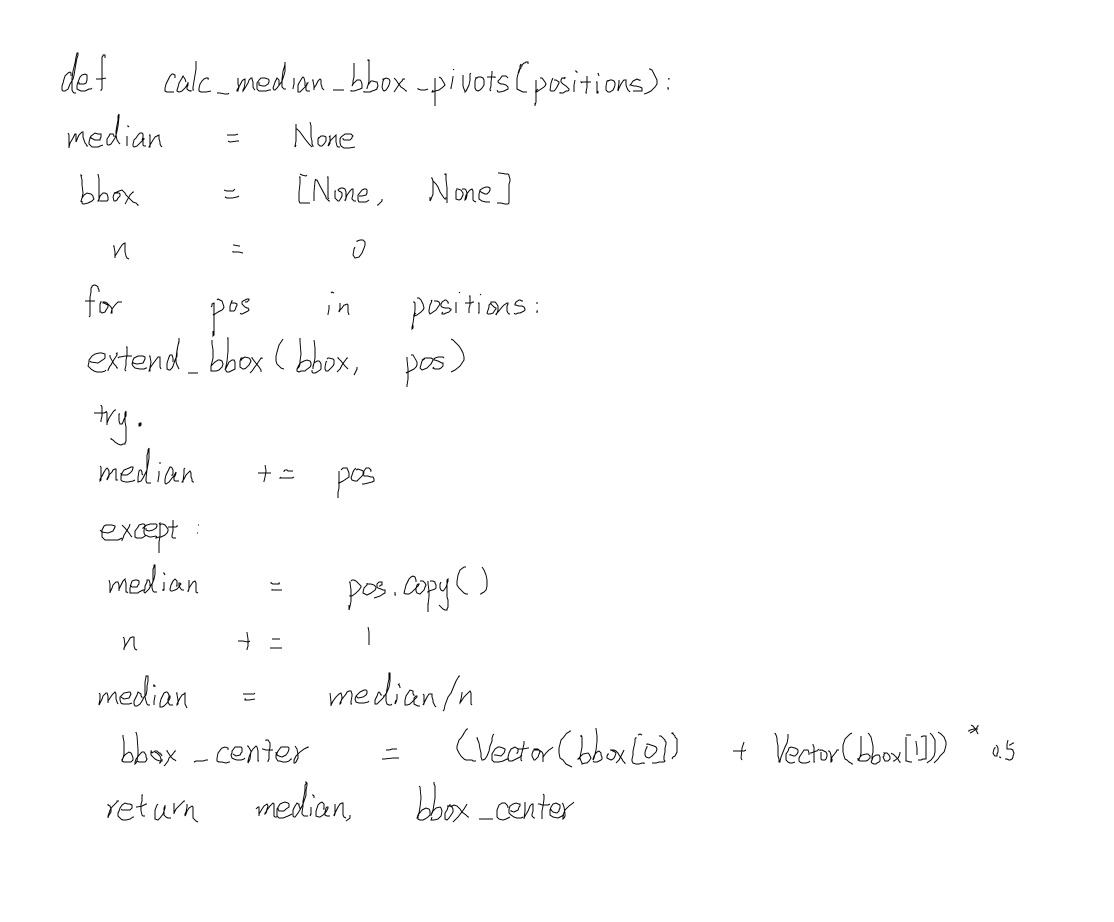 def calc_median_bbox_pivots(positions):
median = None
bbox = [None, None]
n = 0
for pos in positions:
extend_bbox(bbox, pos)
try.
median += pos
except:
median = pos.copy()
n += 1
median = median/n
bbox_center = (Vector(bbox[0]) + Vector(bbox[1])) * 0.5
return median, bbox_center